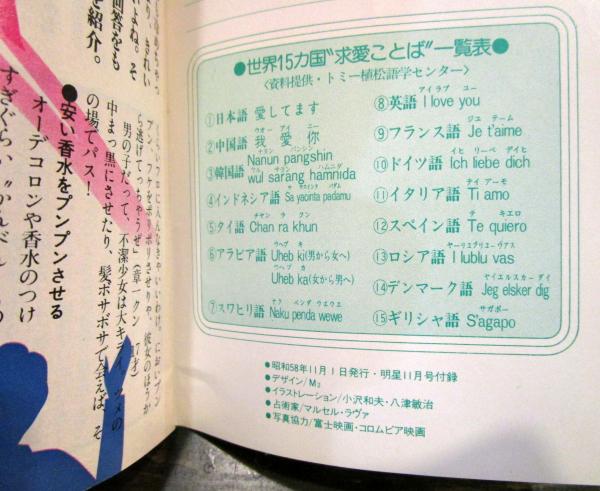 ●世界15カ国"求愛ことば"一覧表●
〈資料提供・トミー植松語学センター〉
①日本語 愛してます
ウオー アイ ニー
②中国語 我 愛 你
ナヌン パンシン
Nanun pangshin
③韓国語 wul sarang hamnida
④インドネシア語 Sa yacinta padamu
チャン ラ クン
⑤タイ語 Chan ra khun
ウヘブ キ
⑥アラビア語 Uheb ki(男から女へ)
ウヘブ カ
Uheb ka(女から男へ)
ナク ペンダ ウエウエ
⑦スワヒリ語 Naku penda wewe
アイ ラブ ユー
⑧英語 I love you
ジュ テーム
⑨フランス語 Je t'aime
イヒ リーベ デイヒ
⑩ドイツ語 Ich liebe dich
テイ アーモ
⑪イタリア語 Ti amo
テ キエロ
⑫スペイン語 Te quiero
⑬ロシア語 I lublu vas
ヤイエルスカー ダイ
⑭デンマーク語 Jeg elsker dig
サガポー
⑮ギリシャ語 S'agapo
●昭和58年11月1日発行・明星11月号付録
●デザイン/M₂
●イラストレーション/小沢和夫・八津敏治
●占術家/マルセル・ラヴァ
●写真協力/富士映画・コロムビア映画
を紹介。
回答をも
いよね。そ
ら逃げてっちゃうぜ」(章一クン
男の子だって、不潔少女は大キライ。ツメの
中まっ黒にさせたり、髪ボサボサで会えば、そ
の場でパス!
●安い香水をプンプンさせる
オーデコロンや香水のつけ
すぎぐらい、